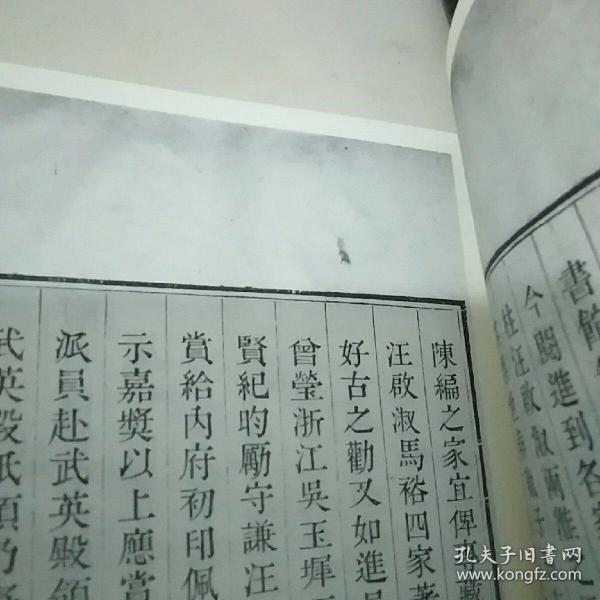 書館
今閱進到各家
汪啟淑兩淮
陳編之家宜俾
汪啟淑馬裕四家著
好古之勸又如進呈
曾瑩浙江吳玉墀
賢紀昀勵守謙汪
賞給內府初印佩
示嘉獎以上應賞
派員赴武英殿領
武英殿祇領乃
孔夫子旧书网
www.kongfz.com